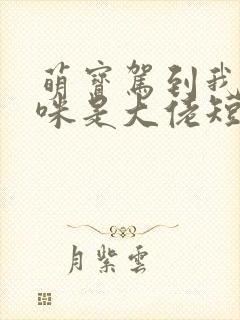 萌寳駕到我
咪是大佬短
月紫雲